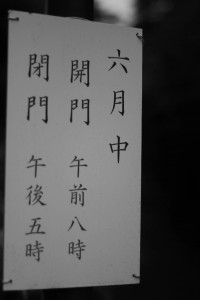 六月中
開門　午前八時
閉門　午後五時